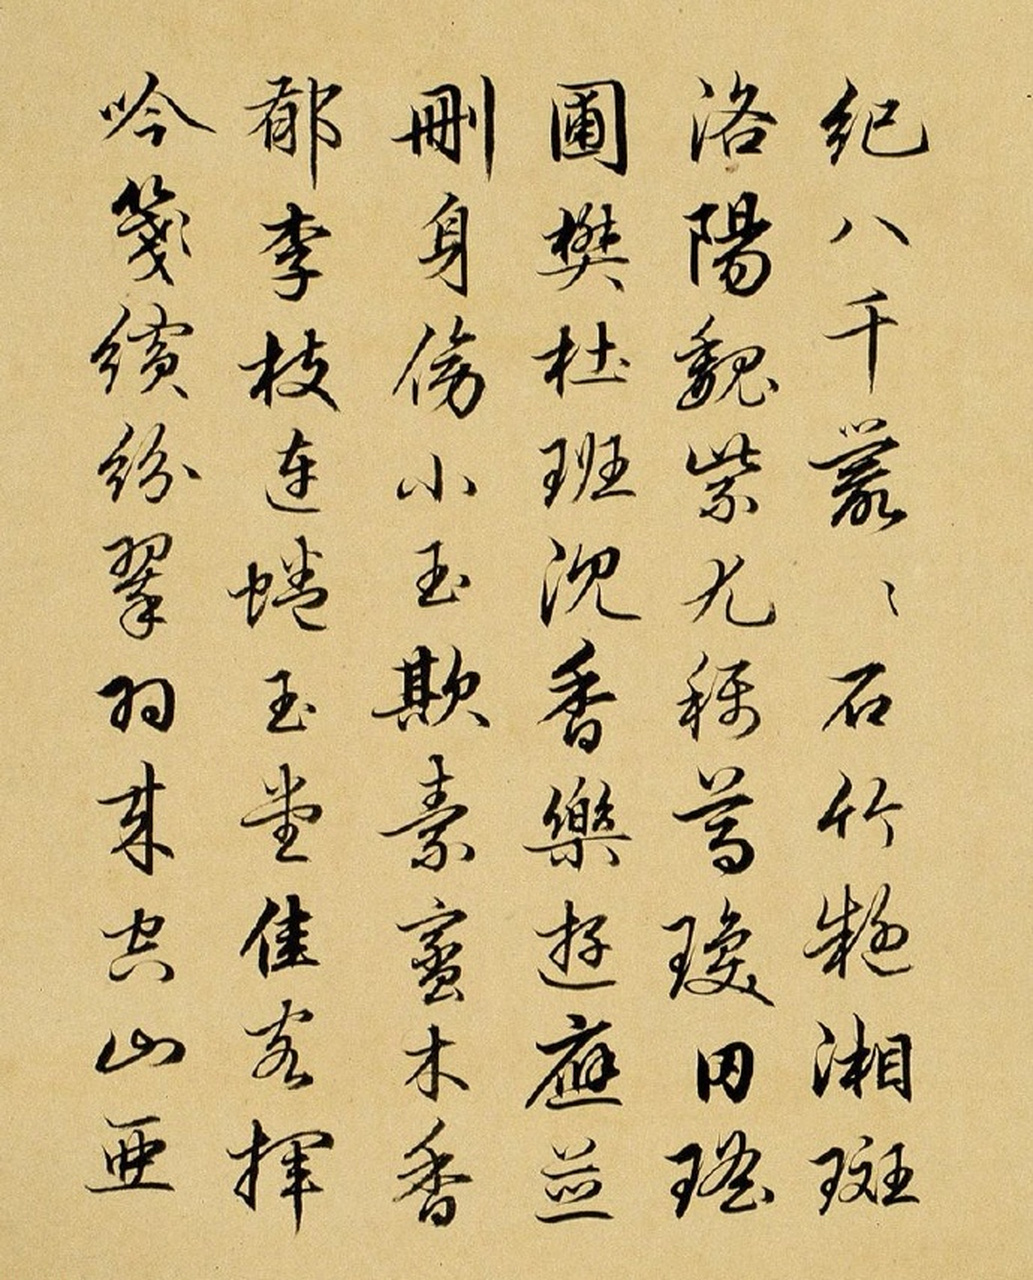 紀八千叢〻石竹艷湘斑
洛陽魏紫尤稱尊瓊田瑤
圃樊杜班沉香樂遊應並
刪身傍小玉欺素蠻木香
郁李枝連蜷玉堂佳客揮
吟箋繽紛翠羽來空山亞